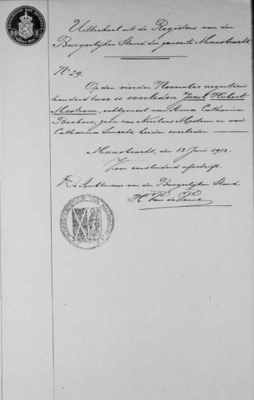 Uittreksel uit de Registers van den
Burgerlijken Stand der gemeente Maasbracht
No 29.
Op den vierden November negentien
honderd twee is overleden Jacob Hubert
echtgenoot van Anna Catharina
zoon van Nicolaas en van
Catharina Smeets, beiden overleden.
Maasbracht, den 13 Juni 1912.
Voor eensluidend afschrift,
De Ambtenaar van den Burgerlijken Stand,
H. van de